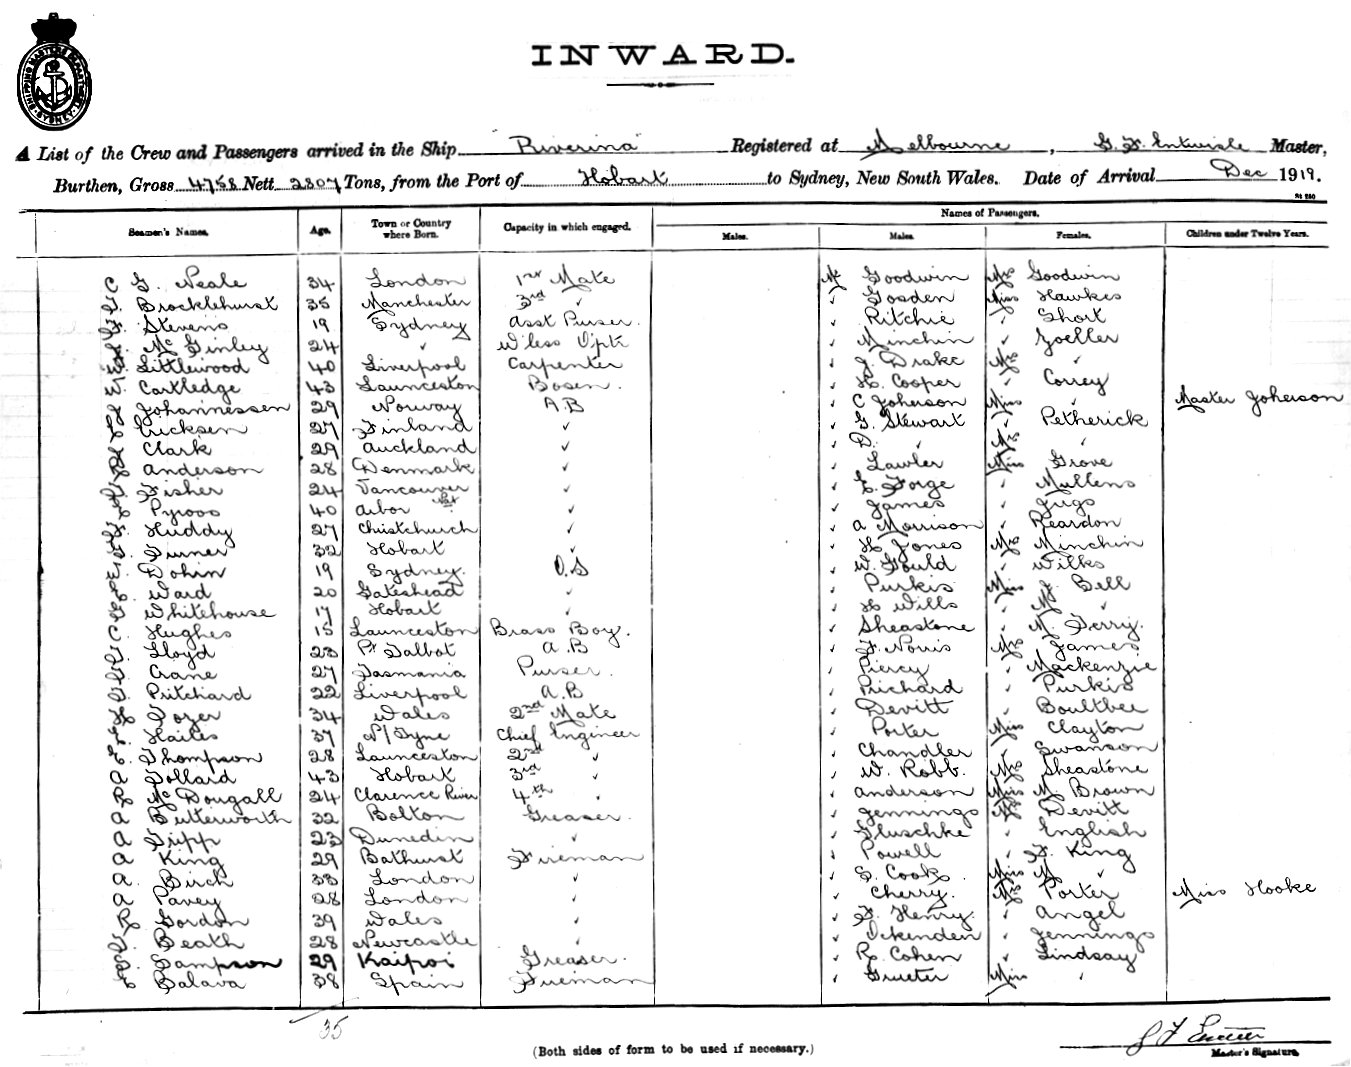 SHIPPING MASTERS DEPARTMENT SYDNEY
INWARD.
A List of the Crew and Passengers arrived in the Ship "Riverina" Registered at Melbourne, G. F. Entwisle Master,
Burthen, Gross 4758 Nett 2807 Tons, from the Port of Hobart to Sydney, New South Wales. Date of Arrival Dec 1919.
Names of Passengers.
Seamen's Names. Age. Town or Country where Born. Capacity in which engaged. Males. Males. Females. Children under Twelve Years.
C G. Neale 34 London 1st Mate Mr Goodwin Mrs Goodwin
Brocklehurst 35 Manchester 3rd " " Gosden Miss Hawkes
Stevens 19 Sydney Asst Purser. " Ritchie " Short
McGinley 24 " W'less Optr " Minchin " Zoeller
W. Littlewood 40 Liverpool Carpenter " J. Drake Mrs "
W. Cartledge 43 Launceston Bosen. " H. Cooper " Correy
Johannessen 29 Norway A.B " C Joherson Miss " Master Joherson
Ericksen 27 Finland " " G. Stewart " Petherick
Clark 29 Auckland " " D. " Mrs "
Anderson 28 Denmark " " Lawler Miss Grove
Fisher 24 Vancouver " " Forge " Mullens
Pyroos 40 Arbor " " James " Jugs
Huddy 27 Christchurch " " A Morrison " Reardon
Turner 32 Hobart " " H Jones Mrs Minchin
Dohin 19 Sydney. O.S " W. Gould " Wilks
Ward 20 Gateshead " " Purkis Miss J. Bell
Whitehouse 17 Hobart " " H Wills " M "
C. Hughes 15 Launceston Brass Boy. " Sheastone " M. Derry.
Lloyd 23 Pt Talbot A.B " F. Nouis Mrs James
Crane 27 Tasmania Purser. " Piercy " Mackenzie
Pritchard 22 Liverpool A.B " Prichard " Purkis
Tozer 34 Wales 2nd Mate " Devitt " Boultbee
Hailes 37 N/Tyne Chief Engineer " Porter Miss Clayton
Thompson 28 Launceston 2nd " " Chandler " Swanson
A Tollard 43 Hobart 3rd " " W. Robb. Mrs Sheastone
R McDougall 24 Clarence River 4th " " Anderson Miss M. Brown
A Butterworth 32 Bolton Greaser. " Jennings Mrs Devitt
A Tripp 23 Dunedin " " Pluschke " English
A King 29 Bathurst Fireman " Powell " F. King
A. Birch 33 London " " S. Cook Miss M "
A Pavey 28 London " " Cherry. Mrs Porter Miss Hooke
R Gordon 39 Wales " " F. Henry. " Angel
Beath 28 Newcastle " " Ockenden " Jennings
Sampson 29 Kaipoi Greaser. " R. Cohen " Lindsay
Balava 38 Spain Fireman " Grueter Miss "
35
(Both sides of form to be used if necessary.)
Master's Signature.